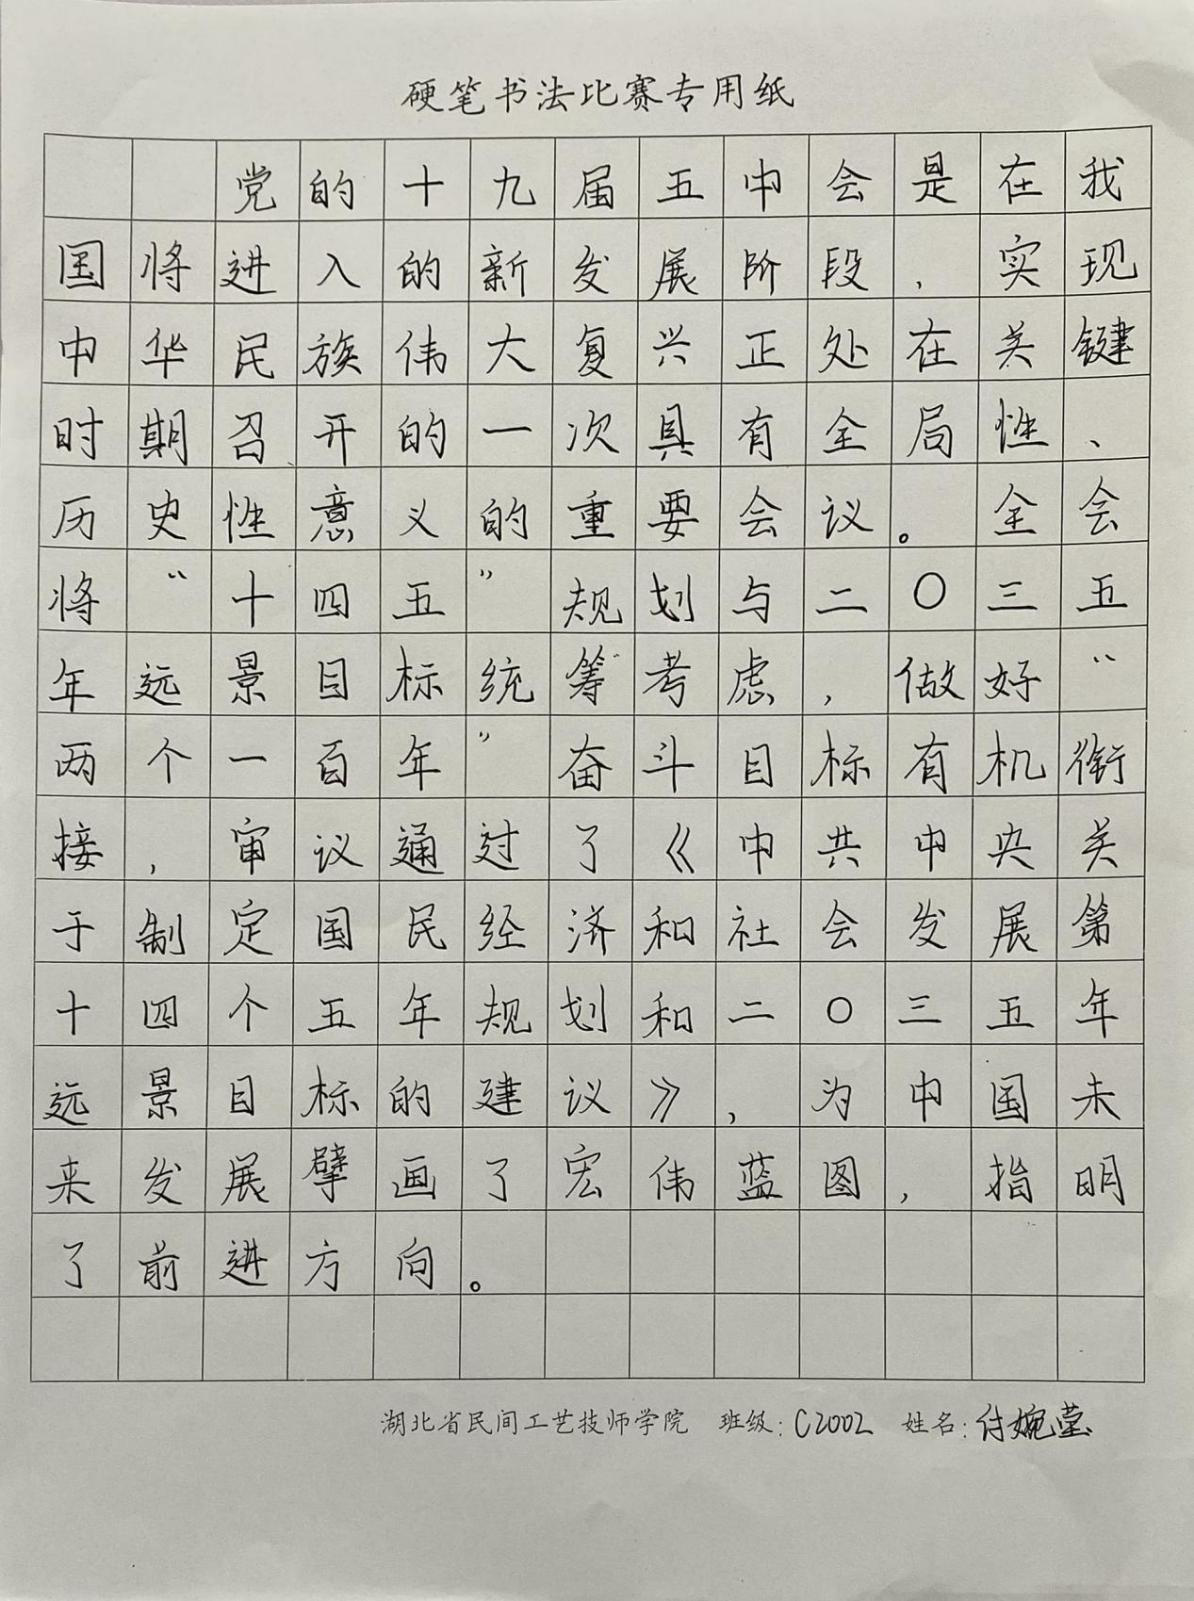 硬笔书法比赛专用纸
党的十九届五中会是在我
国将进入的新发展阶段，实现
中华民族伟大复兴正处在关键
时期召开的一次具有全局性、
历史性意义的重要会议。全会
将“十四五”规划与二〇三五
年远景目标统筹考虑，做好“
两个一百年”奋斗目标有机衔
接，审议通过了《中共中央关
于制定国民经济和社会发展第
十四个五年规划和二〇三五年
远景目标的建议》，为中国未
来发展擘画了宏伟蓝图，指明
了前进方向。
湖北省民间工艺技师学院 班级：C2002 姓名：付婉莹